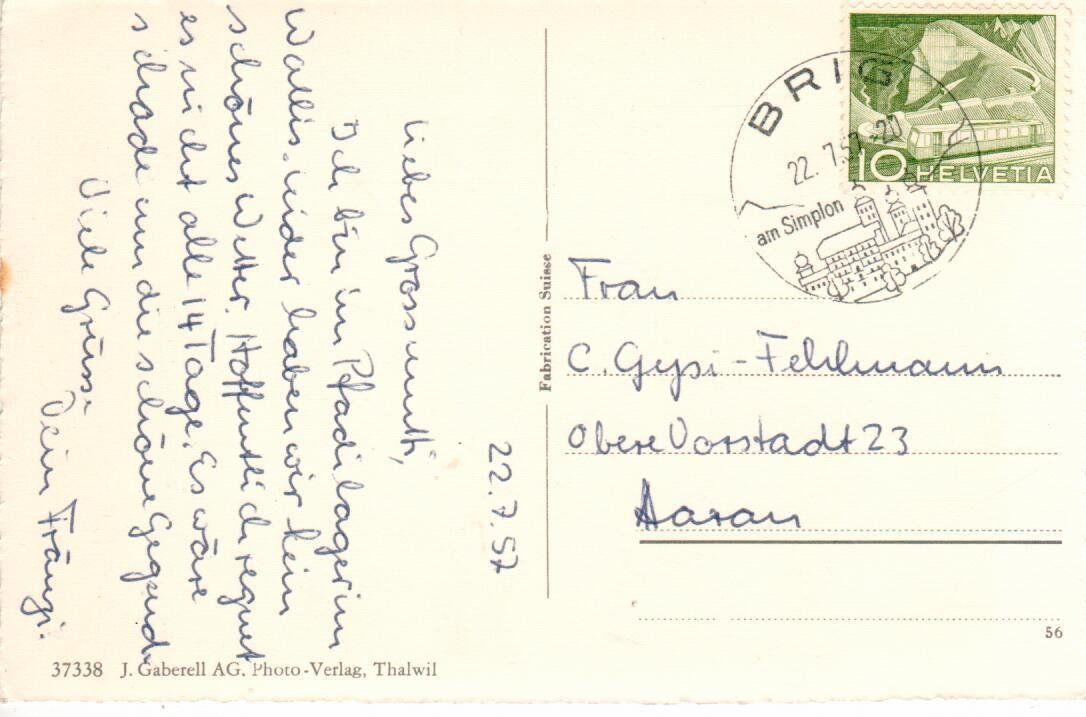 22.7.57
Liebes Grossmutti,
Ich bin im Pfadilager im
Wallis. Leider haben wir kein
schönes Wetter. Hoffentlich regnet
es nicht alle 14 Tage. Es wäre
schade um die schöne Gegend.
Viele Grüsse
Dein Fränzi.
37338 J. Gaberell AG, Photo-Verlag, Thalwil
Fabrication Suisse
BRIG
22.7.57-20
am Simplon
10 HELVETIA
Frau
C. Gysi-Fehlmann
Obere Vorstadt 23
Aarau
56